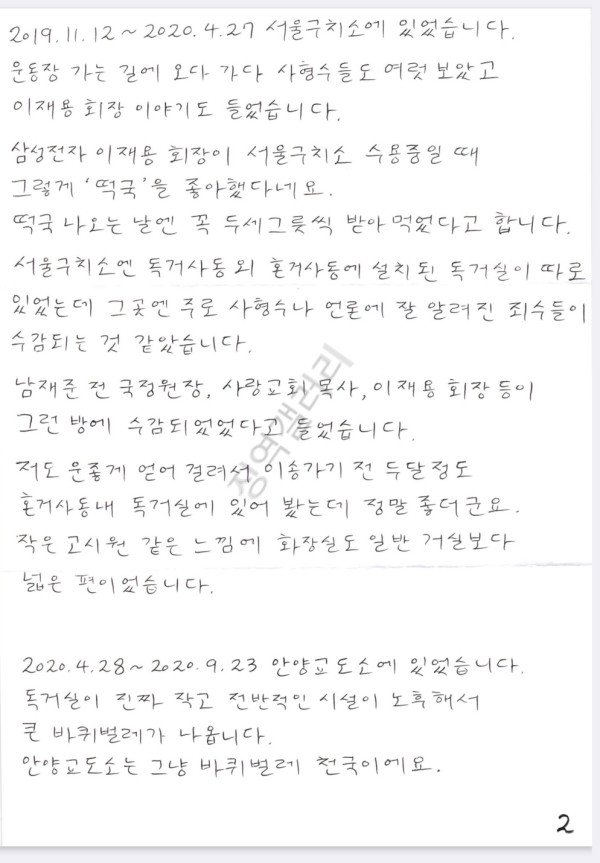 2019.11.12 ~ 2020.4.27 서울구치소에 있었습니다.
운동장 가는 길에 오다 가다 사형수들도 여럿 보았고
이재용 회장 이야기도 들었습니다.
삼성전자 이재용 회장이 서울구치소 수용중일 때
그렇게 '떡국'을 좋아했다네요.
떡국 나오는 날엔 꼭 두세그릇씩 받아 먹었다고 합니다.
서울구치소엔 독거사동 외 혼거사동에 설치된 독거실이 따로
있었는데 그곳엔 주로 사형수나 언론에 잘 알려진 죄수들이
수감되는 것 같았습니다.
남재준 전 국정원장, 사랑교회 목사, 이재용 회장 등이
그런 방에 수감되었었다고 들었습니다.
저도 운좋게 얻어 걸려서 이송가기 전 두달정도
혼거사동내 독거실에 있어 봤는데 정말 좋더군요.
작은 고시원 같은 느낌에 화장실도 일반 거실보다
넓은 편이었습니다.
2020.4.28 ~ 2020.9.23 안양교도소에 있었습니다.
독거실이 진짜 작고 전반적인 시설이 노후해서
큰 바퀴벌레가 나옵니다.
안양교도소는 그냥 바퀴벌레 천국이에요.
2
징역갤러리